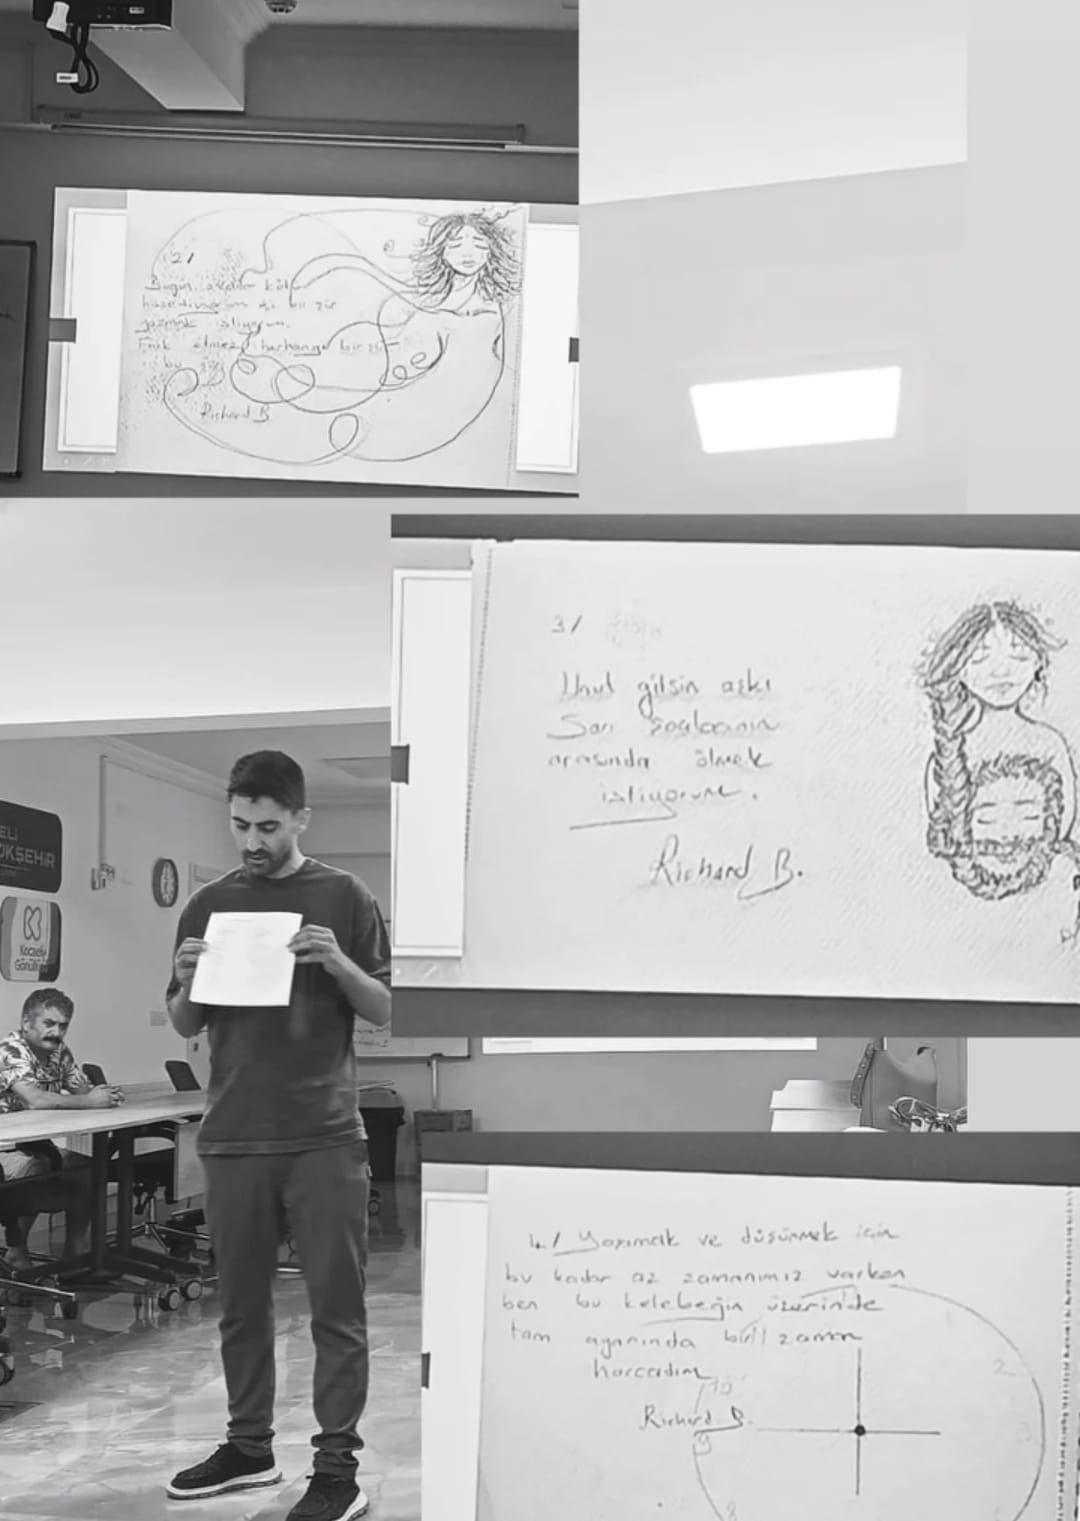 2/
Bugün
hissediyorum ki bir şiir
yazmak istiyorum.
Fark etmez herhangi bir şiir
bu şiir
Richard B.
3/
Unut gitsin aşkı
Sarı
arasında ölmek
istiyorum.
Richard B.
ELİ
OKŞEHİR
Kocaeli
Gönüllüsü
4/ Yaşamak ve düşünmek için
bu kadar az zamanımız varken
ben bu kelebeğin üzerinde
tam ayanında bir zaman
harcadım
10
Richard B.
2
3
9
8